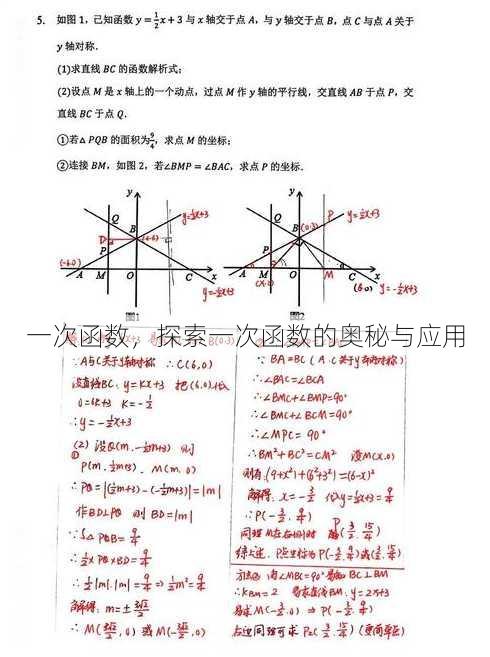 5. 如图 1，已知函数 y=1/2x+3 与 x 轴交于点 A，与 y 轴交于点 B，点 C 与点 A 关于
y 轴对称．
(1)求直线 BC 的函数解析式；
(2)设点 M 是 x 轴上的一个动点，过点 M 作 y 轴的平行线，交直线 AB 于点 P，交
直线 BC 于点 Q．
①若△PQB 的面积为9/4，求点 M 的坐标；
②连接 BM，如图 2，若∠BMP=∠BAC，求点 P 的坐标．
y
Q
B
y=1/2x+3
D
P
(-6.0)
A M O C x
y=-1/2x+3
图1
y
P
y=1/2x+3
Q
B
(0.3)
P
A M O M C x
(x.0)
(6.0)
y=-1/2x+3
图2
一次函数，探索一次函数的奥秘与应用
∵A与C关于y轴对称 ∴C(6,0)
设直线BC: y=kx+3 把(6.0)代入
0=6k+3 k=-1/2
∴y=-1/2x+3
(2) 设Q(m.-1/2m+3) 则
①
P(m.1/2m+3)、M(m.0)
∴PQ=|(1/2m+3)-(-1/2m+3)|=|m|
作BD⊥PQ 则 BD=|m|
∵S△PQB=9/4
∴1/2×PQ×BD=9/4
∴1/2|m|.|m|=9/4 ⇒ 1/2m²=9/4
解得: m=±3√2/2
∴M(3√2/2,0) 或 M(-3√2/2,0)
∵BA=BC (A.C关于y轴对称)
∴∠BAC=∠BCA
∵∠BMC+∠BMP=90°
∴∠BMC+∠BCM=90°
∴∠MPC=90°
∴BM²+BC²=CM² 设M(x.0)
则有: (9+x²)+(6²+3²)=(6-x)²
解得: x=-3/2 代入y=1/2x+3=9/4
∴P(-3/2.9/4)
同理M在右侧时 P(3/2.15/4)
综上述．P坐标为P(-3/2.9/4)或(3/2.15/4)
方法2: 由∠MBC=90° 易知 BC⊥BM
∴KBM=2 易求直线BM: y=2x+3
易求M(-3/2.0) ⇒ P(-3/2.9/4)
右边同理可求 P2(3/2.15/4)